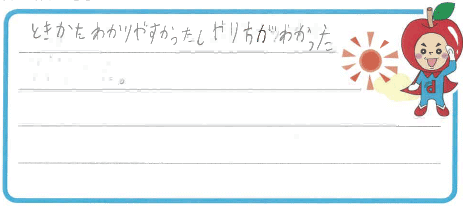 ときかたわかりやすかったしやり方がわかった
。
d